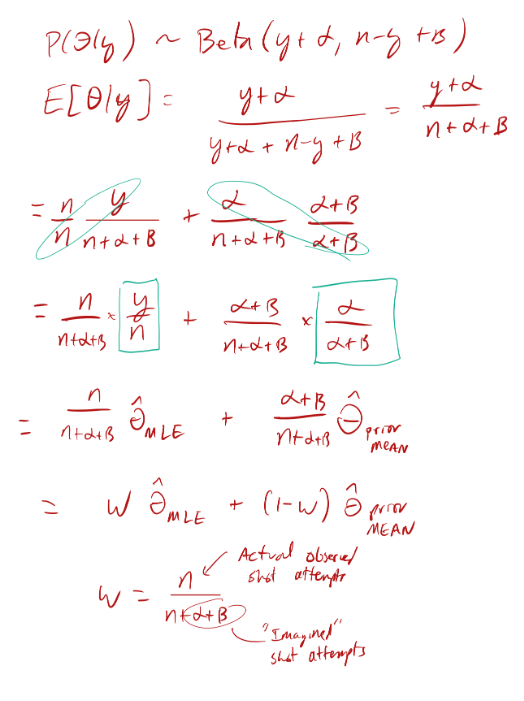 P(θ|y) ~ Beta(y+α, n-y+β)
E[θ|y] = (y+α)/(y+α+n-y+β) = (y+α)/(n+α+β)
= n/n y/(n+α+β) + α/(n+α+β) (α+β)/(α+β)
= n/(n+α+β) × y/n + (α+β)/(n+α+β) × α/(α+β)
= n/(n+α+β) θ̂ MLE + (α+β)/(n+α+β) θ̂ prior MEAN
= w θ̂ MLE + (1-w) θ̂ prior MEAN
w = n/(n+α+β)
Actual observed
shot attempts
"Imagined"
shot attempts